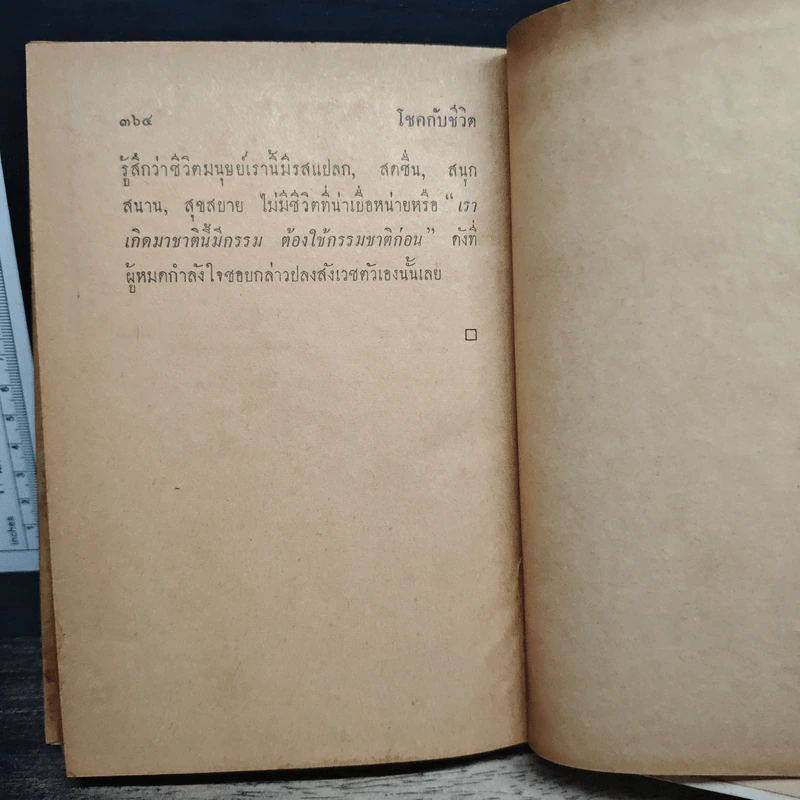 ๓๖๔ โชคกับชีวิต
รู้สึกว่าชีวิตมนุษย์เรานี้มีรสแปลก, สดชื่น, สนุก
สนาน, สุขสบาย ไม่มีชีวิตที่น่าเบื่อหน่ายหรือ “เรา
เกิดมาชาตินี้มีกรรม ต้องใช้กรรมชาติก่อน” ดังที่
ผู้หมดกำลังใจชอบกล่าวปลงสังเวชตัวเองนั้นเลย
inches 1 2 3 4 5
6